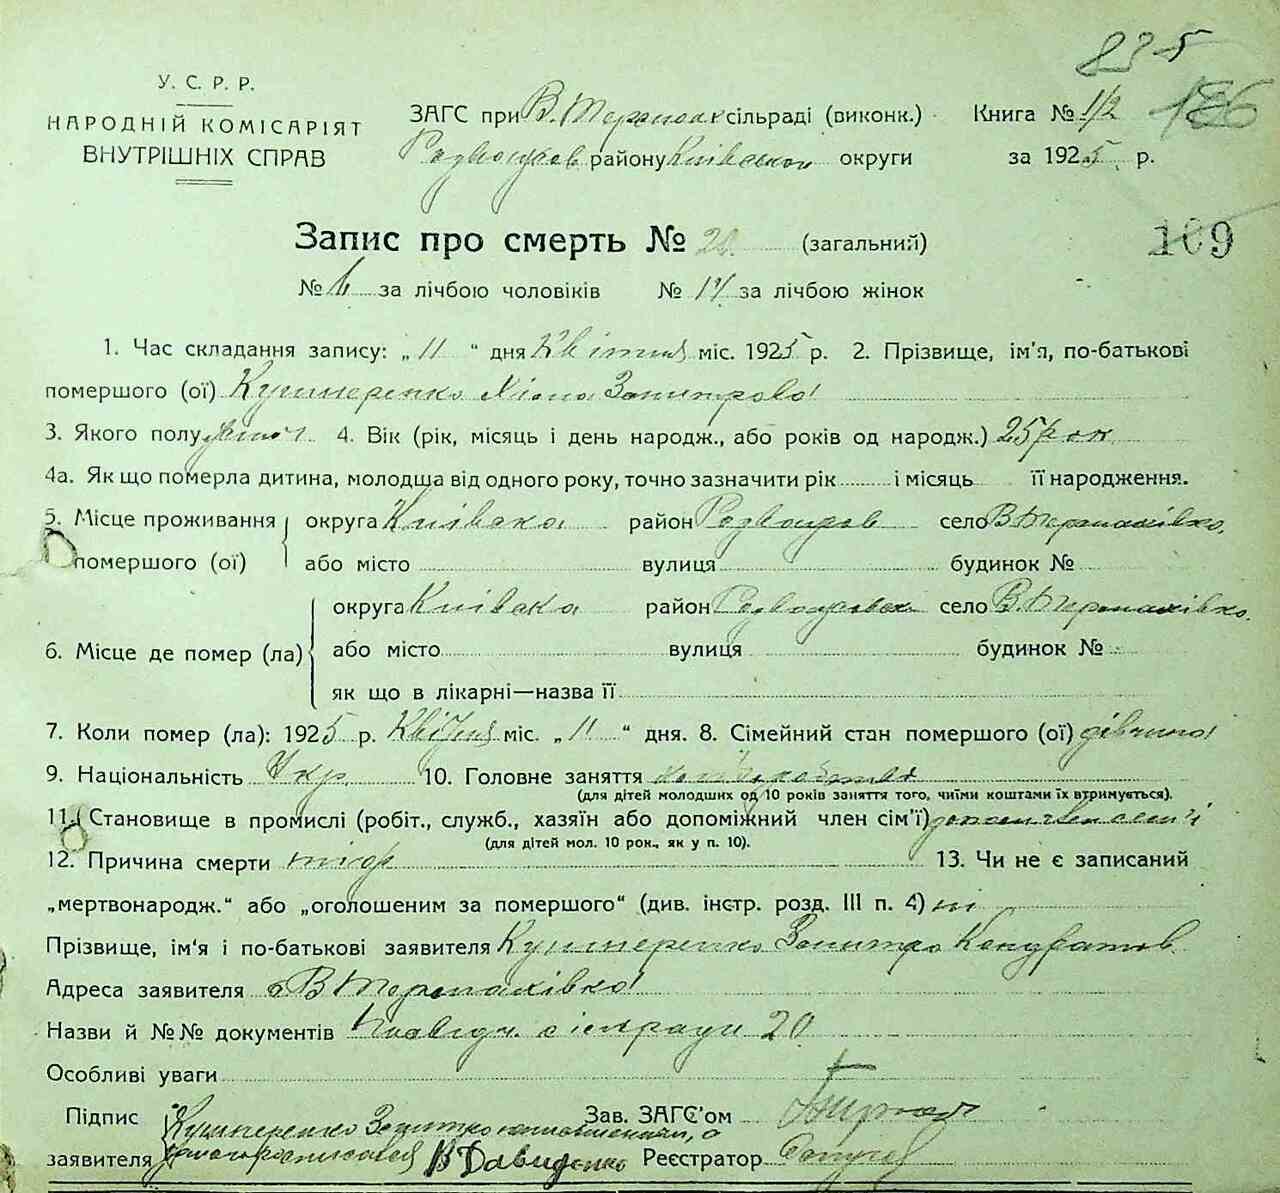 835
186
У. С. Р. Р.
НАРОДНІЙ КОМІСАРІЯТ
ВНУТРІШНІХ СПРАВ
ЗАГС при В. сільраді (виконк.) Книга № 1/2
району Київської округи за 1925 р.
Запис про смерть № 20 (загальний)
169
№ 6 за лічбою чоловіків № 14 за лічбою жінок
1. Час складання запису: „ 11 " дня Квітня міс. 1925 р. 2. Прізвище, ім'я, по-батькові
помершого (ої) Кушнеренко
3. Якого полу 4. Вік (рік, місяць і день народж., або років од народж.) 25 рок
4а. Як що померла дитина, молодша від одного року, точно зазначити рік і місяць її народження.
5. Місце проживання округа Київска район село
помершого (ої) або місто вулиця будинок №
округа Київска район село
6. Місце де помер (ла) або місто вулиця будинок №
як що в лікарні—назва її
7. Коли помер (ла): 1925 р. Квітня міс. „ 11 " дня. 8. Сімейний стан помершого (ої) дівчина
9. Національність Укр. 10. Головне заняття
(для дітей молодших од 10 років заняття того, чиїми коштами їх втримується).
11. Становище в промислі (робіт., служб., хазяїн або допоміжний член сім'ї) допом член сем'ї
(для дітей мол. 10 рок., як у п. 10).
12. Причина смерти тіф 13. Чи не є записаний
„мертвонародж." або „оголошеним за помершого" (див. інстр. розд. III п. 4) ні
Прізвище, ім'я і по-батькові заявителя Кушнеренко Кондратов
Адреса заявителя
Назви й №№ документів сільради 20
Особливі уваги
Підпис Кушнеренко Зав. ЗАГС'ом
заявителя В Давиденко Реєстратор